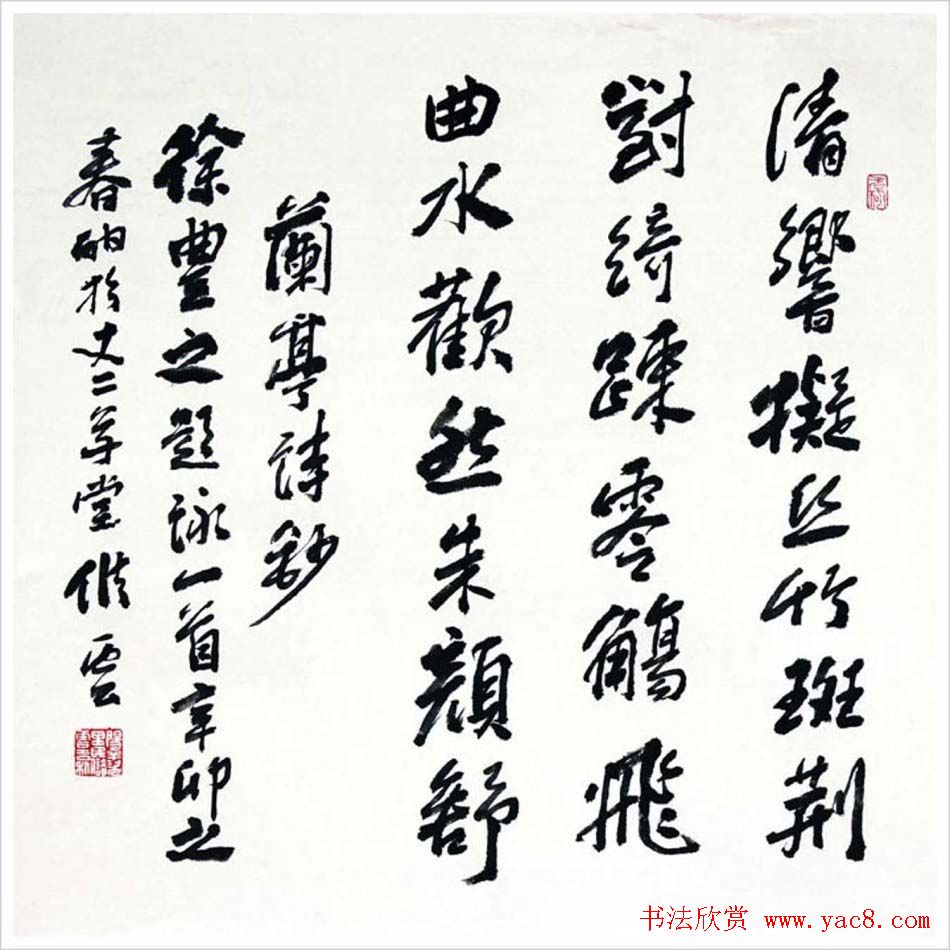 清響擬丝竹斑荆
對綺踈零觴飛
曲水歡然朱顔舒
蘭亭詩鈔
徐豊之題詠一首辛卯之
春於丈二草堂雲
书法欣赏 www.yac8.com